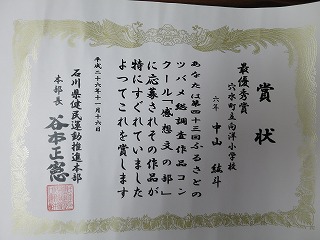 賞状
最優秀賞
穴水町立向洋小学校
六年 中山 紘斗
あなたは第四十三回ふるさとの
ツバメ総調査作品コン
クール「感想文の部」
に応募されその作品が
特にすぐれていました
よってこれを賞します
平成二十六年十一月十六日
石川県健民運動推進本部
本部長 谷本正憲